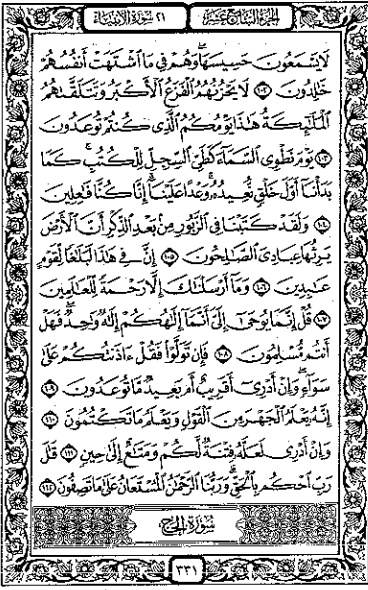 الجزء السابع عشر ٢١ سورة الأنبياء
لَا يَسْمَعُونَ حَسِيسَهَا وَهُمْ فِي مَا ٱشْتَهَتْ أَنفُسُهُمْ
خَٰلِدُونَ ١٠٢ لَا يَحْزُنُهُمُ ٱلْفَزَعُ ٱلْأَكْبَرُ وَتَتَلَقَّىٰهُمُ
ٱلْمَلَٰٓئِكَةُ هَٰذَا يَوْمُكُمُ ٱلَّذِي كُنتُمْ تُوعَدُونَ
١٠٣ يَوْمَ نَطْوِي ٱلسَّمَآءَ كَطَيِّ ٱلسِّجِلِّ لِلْكُتُبِ ۚ كَمَا
بَدَأْنَآ أَوَّلَ خَلْقٍ نُّعِيدُهُۥ ۚ وَعْدًا عَلَيْنَآ ۚ إِنَّا كُنَّا فَٰعِلِينَ
١٠٤ وَلَقَدْ كَتَبْنَا فِي ٱلزَّبُورِ مِنۢ بَعْدِ ٱلذِّكْرِ أَنَّ ٱلْأَرْضَ
يَرِثُهَا عِبَادِيَ ٱلصَّٰلِحُونَ ١٠٥ إِنَّ فِي هَٰذَا لَبَلَٰغًا لِّقَوْمٍ
عَٰبِدِينَ ١٠٦ وَمَآ أَرْسَلْنَٰكَ إِلَّا رَحْمَةً لِّلْعَٰلَمِينَ
١٠٧ قُلْ إِنَّمَا يُوحَىٰٓ إِلَيَّ أَنَّمَآ إِلَٰهُكُمْ إِلَٰهٌ وَٰحِدٌ ۖ فَهَلْ
أَنتُم مُّسْلِمُونَ ١٠٨ فَإِن تَوَلَّوْا۟ فَقُلْ ءَاذَنتُكُمْ عَلَىٰ
سَوَآءٍ ۖ وَإِنْ أَدْرِيٓ أَقَرِيبٌ أَم بَعِيدٌ مَّا تُوعَدُونَ ١٠٩
إِنَّهُۥ يَعْلَمُ ٱلْجَهْرَ مِنَ ٱلْقَوْلِ وَيَعْلَمُ مَا تَكْتُمُونَ ١١٠
وَإِنْ أَدْرِي لَعَلَّهُۥ فِتْنَةٌ لَّكُمْ وَمَتَٰعٌ إِلَىٰ حِينٍ ١١١ قَٰلَ
رَبِّ ٱحْكُم بِٱلْحَقِّ ۗ وَرَبُّنَا ٱلرَّحْمَٰنُ ٱلْمُسْتَعَانُ عَلَىٰ مَا تَصِفُونَ ١١٢
سورة الحج
٣٣١